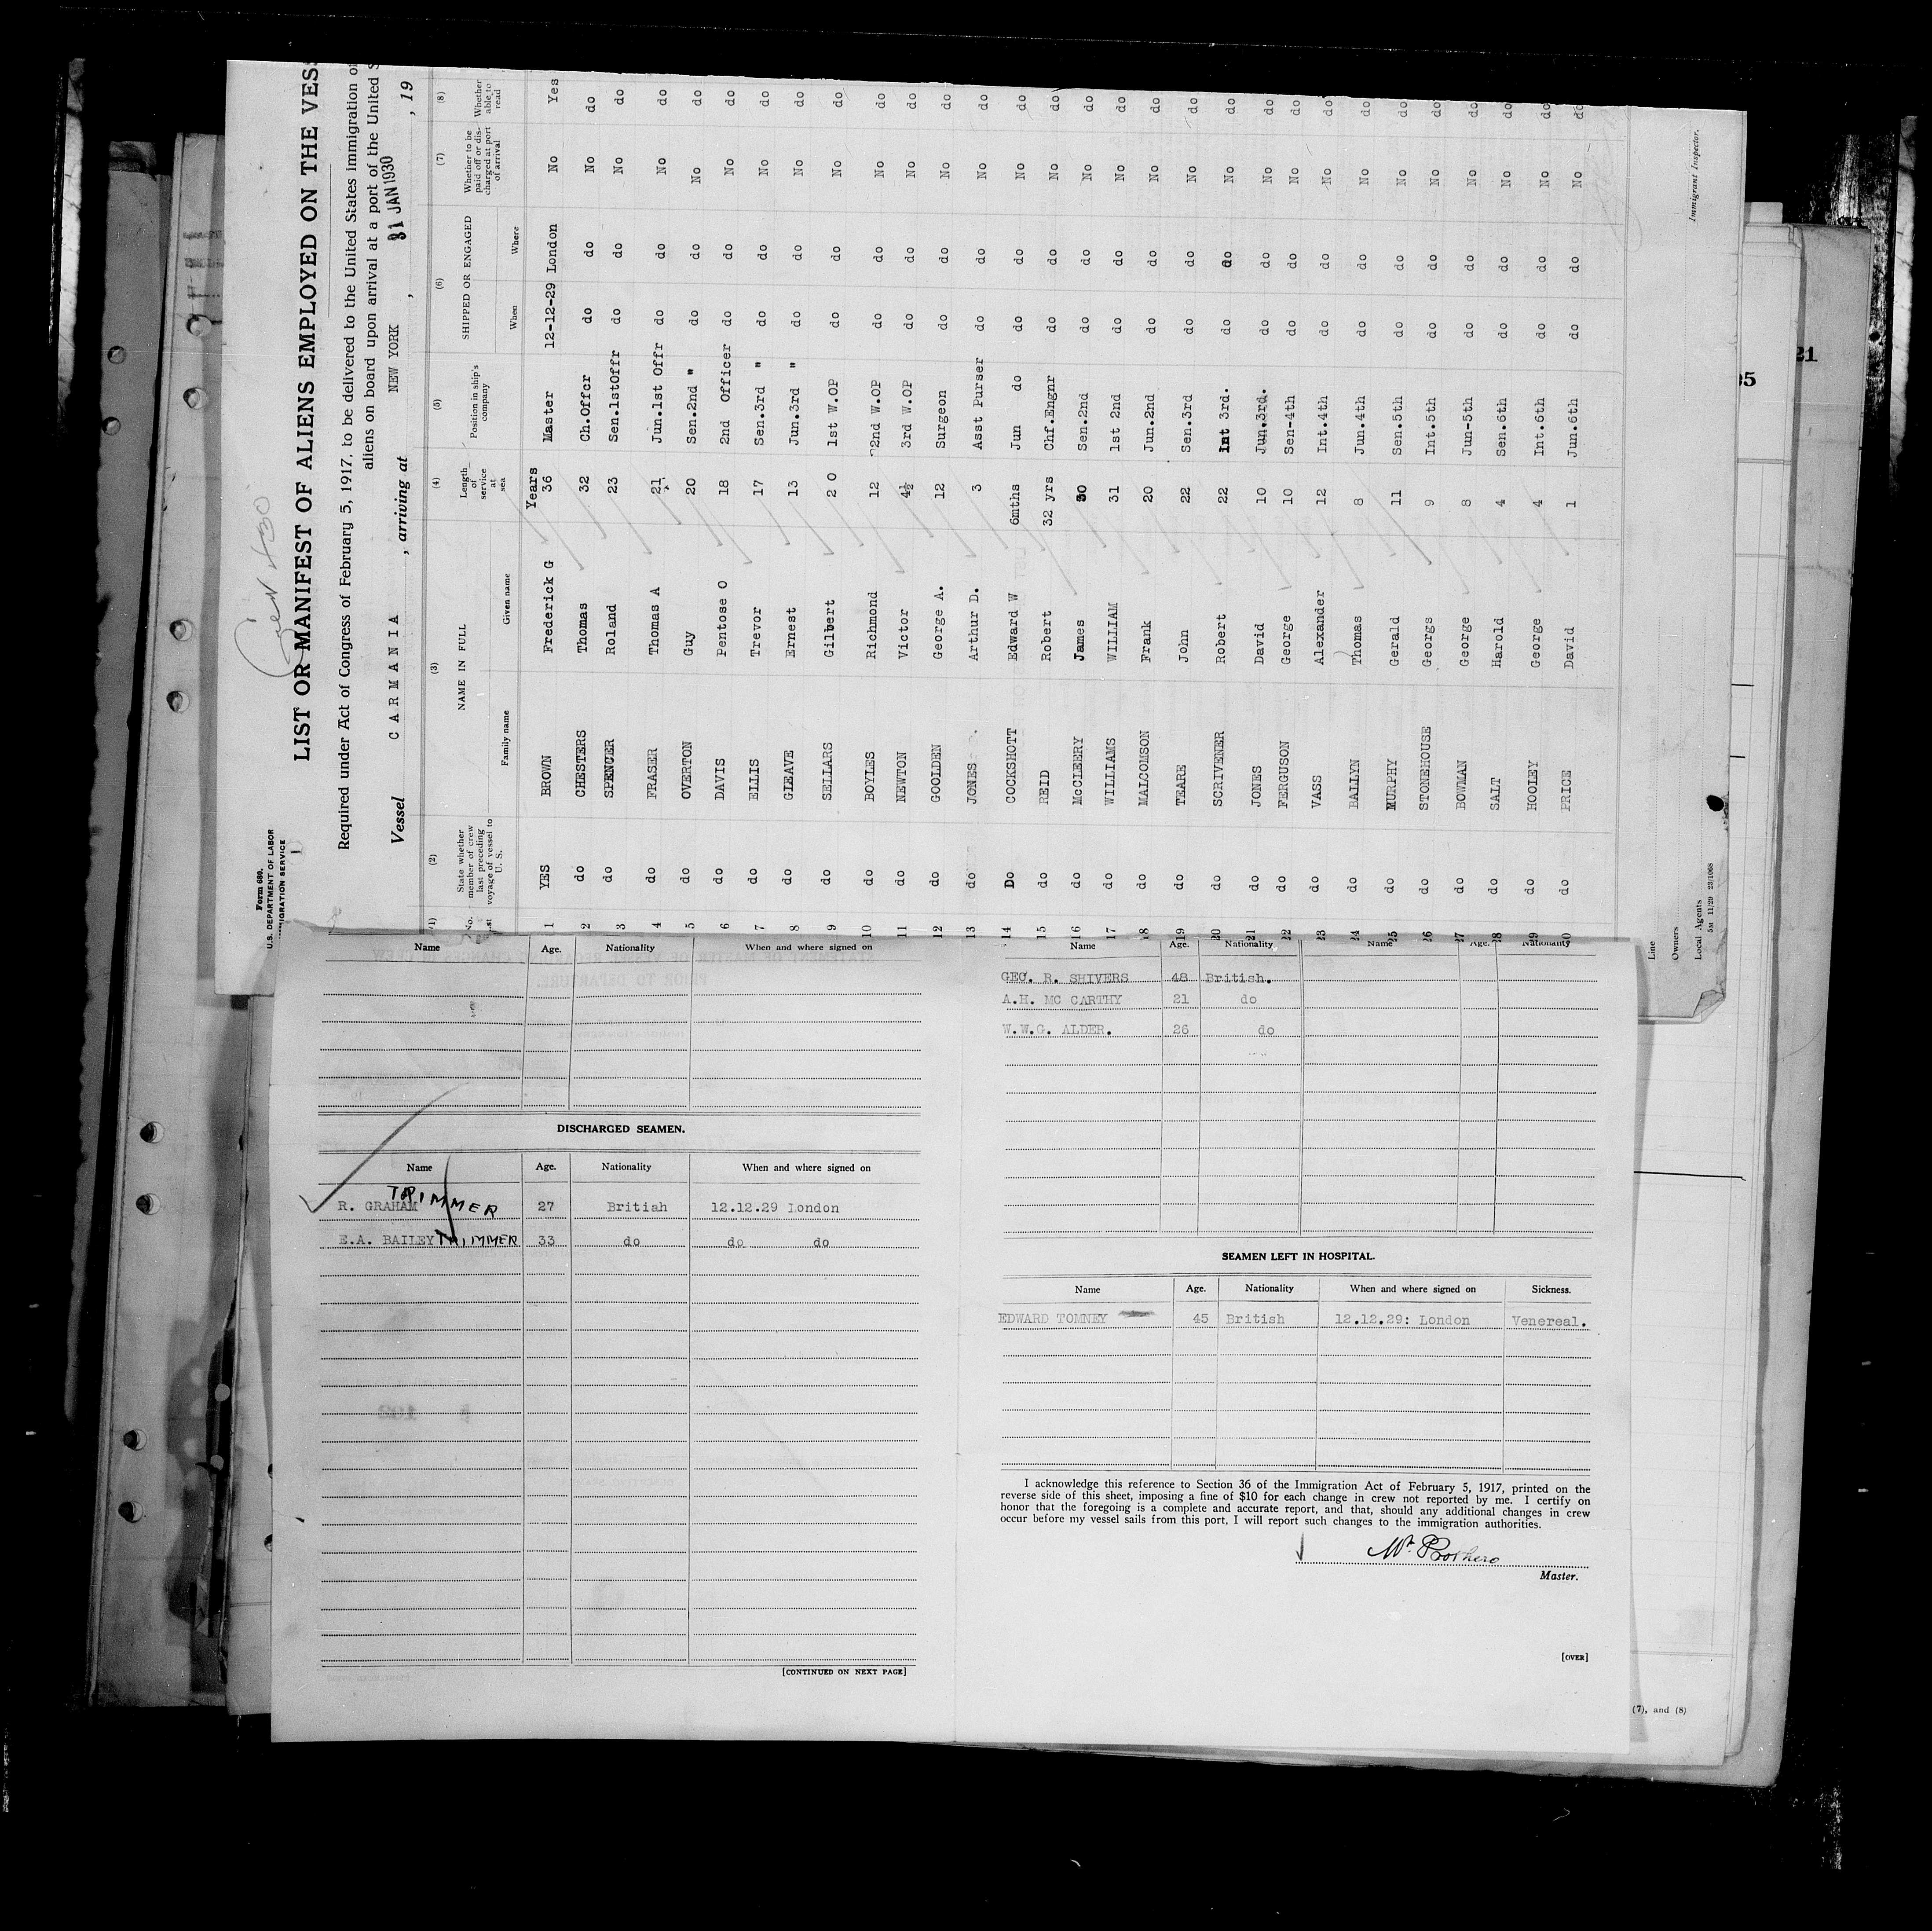 Form 680.
U.S. DEPARTMENT OF LABOR
IMMIGRATION SERVICE
LIST OR MANIFEST OF ALIENS EMPLOYED ON THE VESS
Required under Act of Congress of February 5, 1917, to be delivered to the United States immigration of
aliens on board upon arrival at a port of the United S
Vessel CARMANIA , arriving at NEW YORK , 31 JAN 1930 , 19
(1) (2) (3) (4) (5) (6) (7) (8)
No. State whether member of crew last preceding voyage of vessel to U. S. NAME IN FULL Family name Given name Length of service at sea Position in ship's company SHIPPED OR ENGAGED When Where Whether to be paid off or discharged at port of arrival Whether able to read
Years
1 YES BROWN Frederick G 36 Master 12-12-29 London No Yes
2 do CHESTERS Thomas 32 Ch.Offcr do do No do
3 do SPENCER Roland 23 Sen.1stOffr do do No do
4 do FRASER Thomas A 21 Jun.1st Offr do do No do
5 do OVERTON Guy 20 Sen.2nd " do do No do
6 do DAVIS Pentose O 18 2nd Officer do do No do
7 do ELLIS Trevor 17 Sen.3rd " do do No do
8 do GLEAVE Ernest 13 Jun.3rd " do do No do
9 do SELLARS Gilbert 2 0 1st W.OP do do No do
10 do BOYLES Richmond 12 2nd W.OP do do No do
11 do NEWTON Victor 4½ 3rd W.OP do do No do
12 do GOOLDEN George A. 12 Surgeon do do No do
13 do JONES Arthur D. 3 Asst Purser do do No do
14 Do COCKSHOTT Edward W 6mths Jun do do do No do
15 do REID Robert 32 yrs Chf.Engnr do do No do
16 do McCLEERY James 30 Sen.2nd do do No do
17 do WILLIAMS WILLIAM 31 1st 2nd do do No do
18 do MALCOMSON Frank 20 Jun.2nd do do No do
19 do TEARE John 22 Sen.3rd do do No do
20 do SCRIVENER Robert 22 Int 3rd. do do No do
21 do JONES David 10 Jun.3rd. do do No do
22 do FERGUSON George 10 Sen-4th do do No do
23 do VASS Alexander 12 Int.4th do do No do
24 do BALLYN Thomas 8 Jun.4th do do No do
25 do MURPHY Gerald 11 Sen.5th do do No do
26 do STONEHOUSE Georgs 9 Int.5th do do No do
27 do BOWMAN George 8 Jun-5th do do No do
28 do SALT Harold 4 Sen.6th do do No do
29 do HOOLEY George 4 Int.6th do do No do
30 do PRICE David 1 Jun.6th do do No do
Line
Owners
Local Agents
5M 11/29 23/1068
Immigrant Inspector.
Name Age. Nationality When and where signed on
DISCHARGED SEAMEN.
Name Age. Nationality When and where signed on
R. GRAHAM TRIMMER 27 Britiah 12.12.29 London
E.A. BAILEY TRIMMER 33 do do do
[CONTINUED ON NEXT PAGE]
Name Age. Nationality Name Age. Nationality
GEO. R. SHIVERS 48 British.
A.H. MC CARTHY 21 do
W.W.G. ALDER. 26 do
SEAMEN LEFT IN HOSPITAL.
Name Age. Nationality When and where signed on Sickness.
EDWARD TOMNEY 45 British 12.12.29: London Venereal.
I acknowledge this reference to Section 36 of the Immigration Act of February 5, 1917, printed on the
reverse side of this sheet, imposing a fine of $10 for each change in crew not reported by me. I certify on
honor that the foregoing is a complete and accurate report, and that, should any additional changes in crew
occur before my vessel sails from this port, I will report such changes to the immigration authorities.
Master.
[OVER]
(7), and (8)
35
21